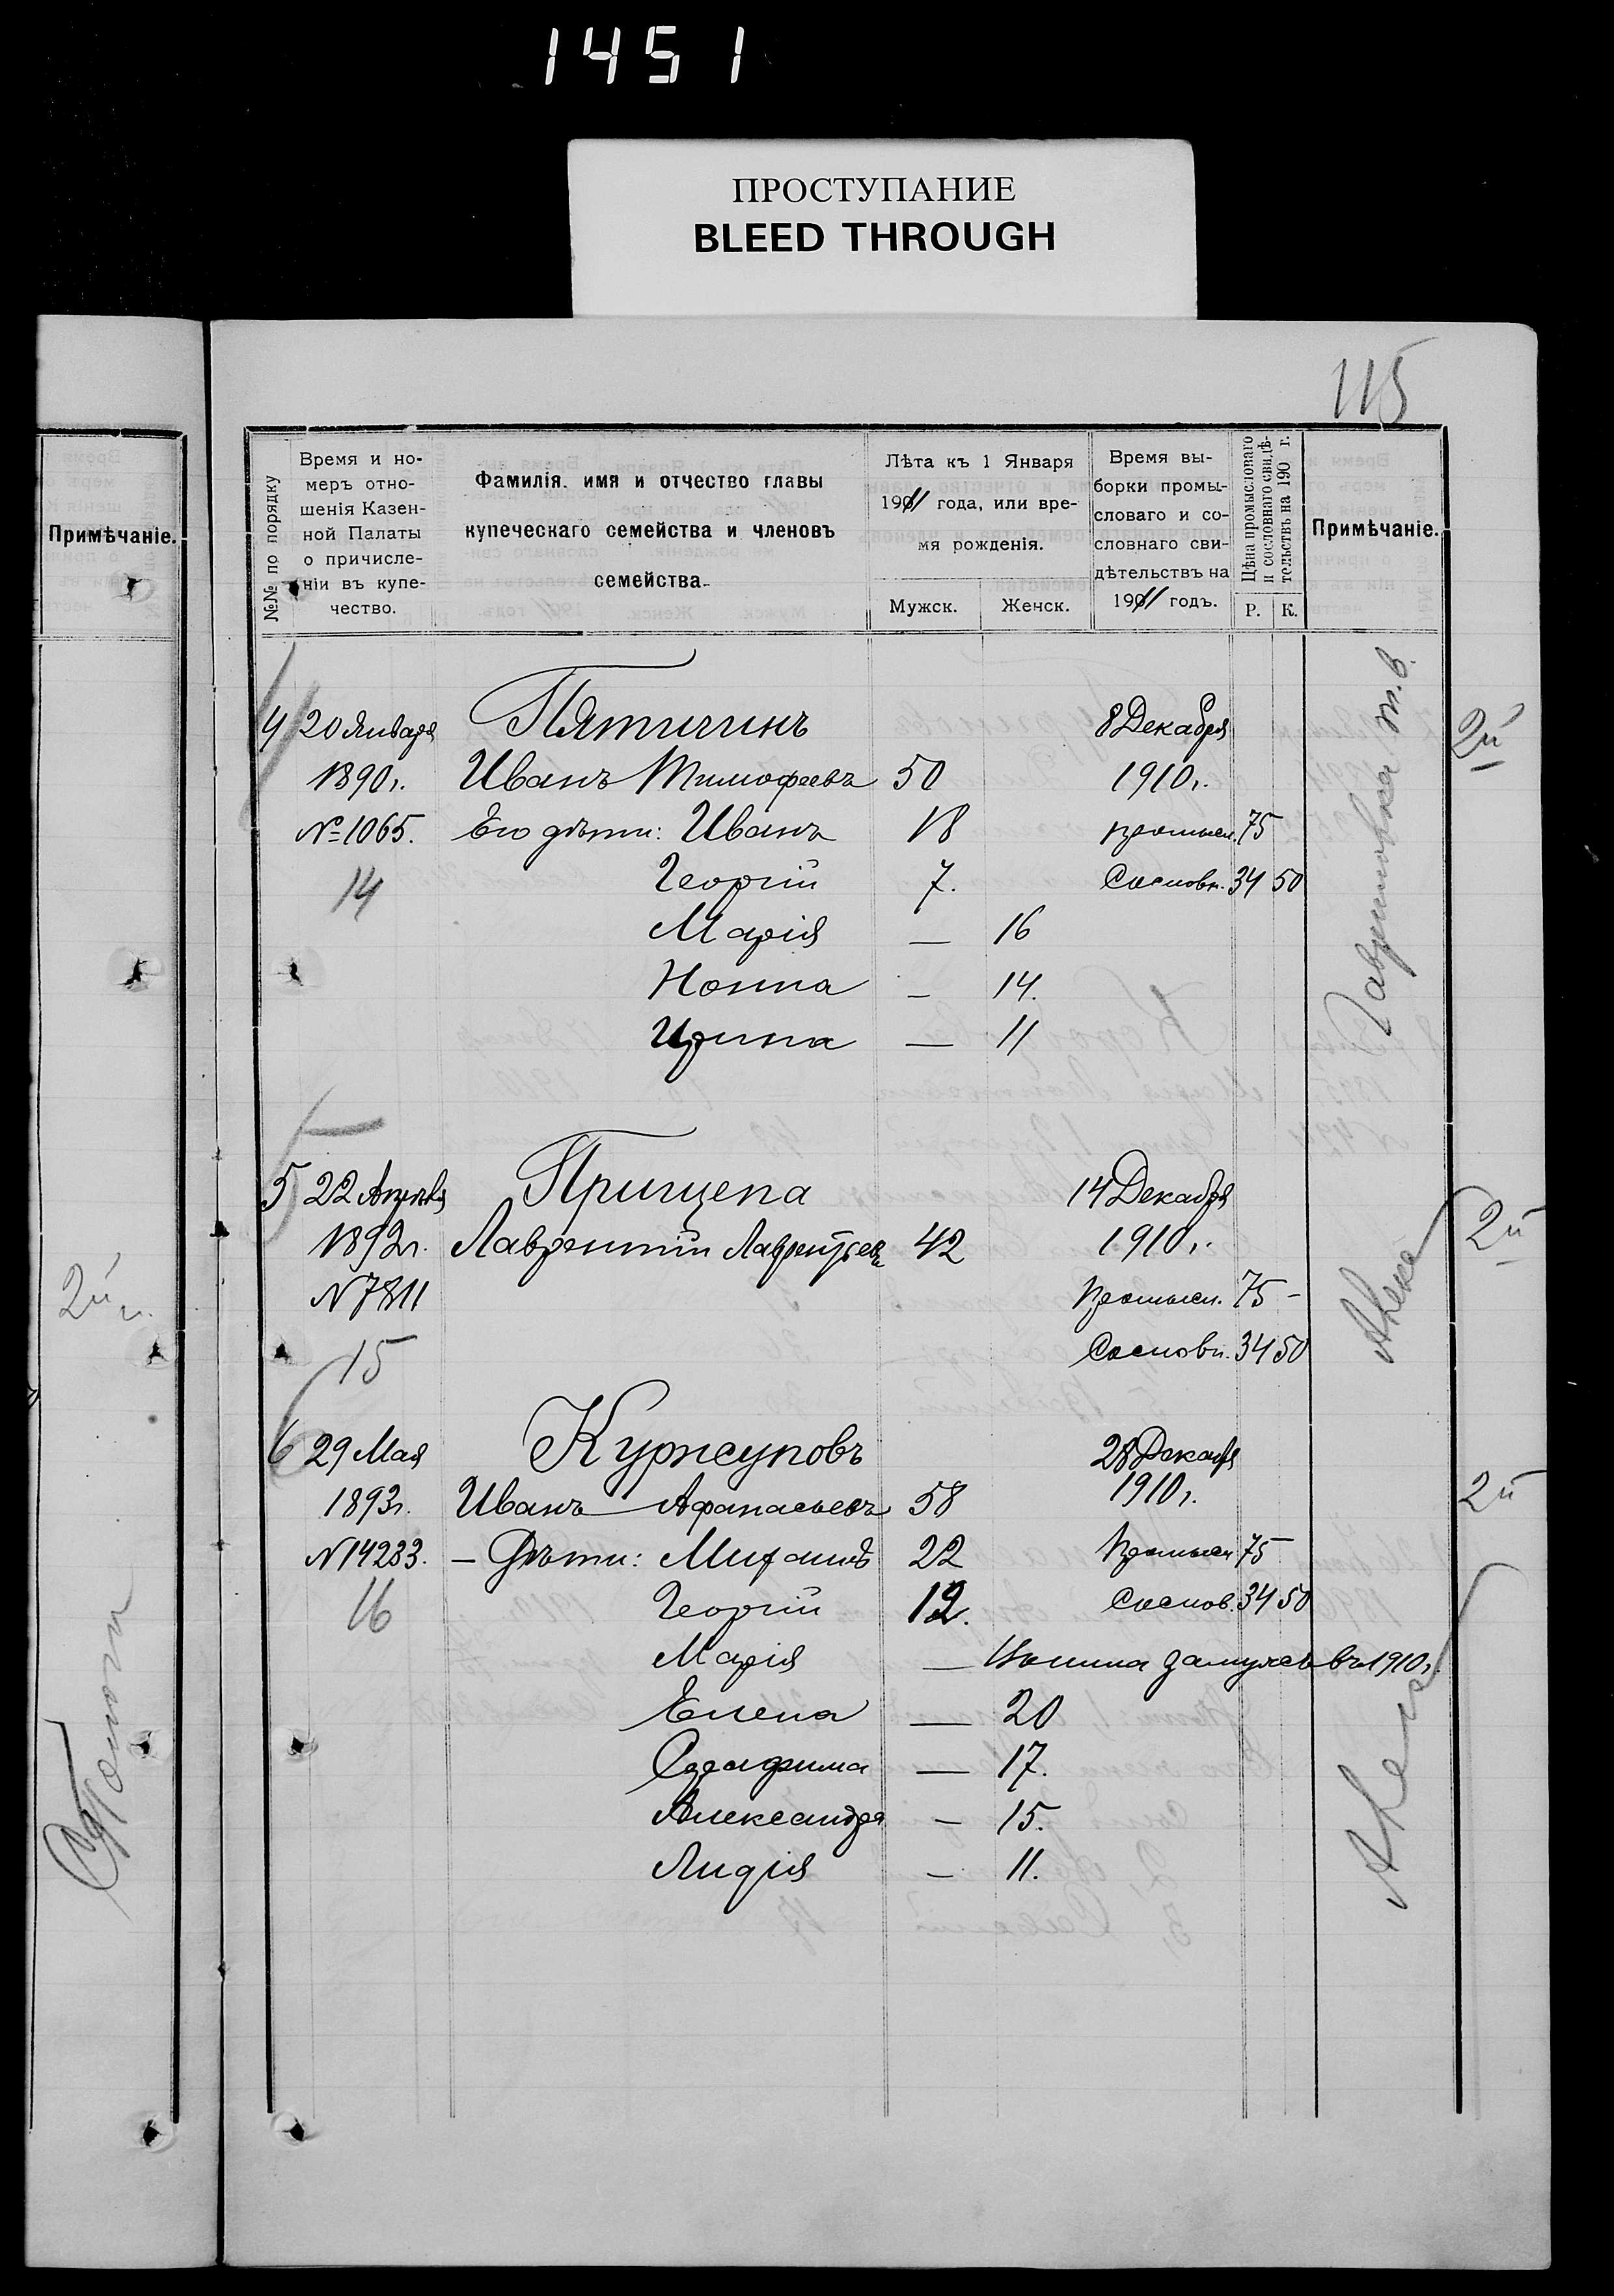 1451
ПРОСТУПАНИЕ
BLEED THROUGH
115
Примѣчаніе.
2й
№№ по порядку
Время и но-
меръ отно-
шенія Казен-
ной Палаты
о причисле-
ніи въ купе-
чество.
Фамилія. имя и отчество главы
купеческаго семейства и членовъ
семейства.
Лѣта къ 1 Января
1911 года, или вре-
мя рожденія.
Мужск. Женск.
Время вы-
борки промы-
словаго и со-
словнаго сви-
дѣтельствъ на
1911 годъ.
Цѣна промысловаго
и сословнаго свидѣ-
тельствъ на 190 г.
Р. К.
Примѣчаніе.
4 20 Января Пятигинъ 8 Декабря 2й
1890г. Иванъ Тимофеевъ 50 1910г.
№1065. Его дѣти: Иванъ 18 промысл. 75
14 Георгій 7. Сословн. 34 50
Марія — 16
Нонна — 14.
Ирина — 11
5 22 Апрѣля Прищепа 14 Декабря 2й
1892г. Лаврентій Лаврентьевъ 42 1910г.
N7811 Промысл. 75 -
15 Сословн. 34 50
6 29 Мая Куржуповъ 28 Декабря
1893г. Иванъ Афанасьевъ 58 1910г. 2й
N14233. — Дѣти: Михаилъ 22 Промысл 75
16 Георгій 12. Сослов. 34 50
Марія — Вышла замужъ въ 1910г.
Елена — 20
Серафима — 17.
Александра — 15.
Лидія — 11.